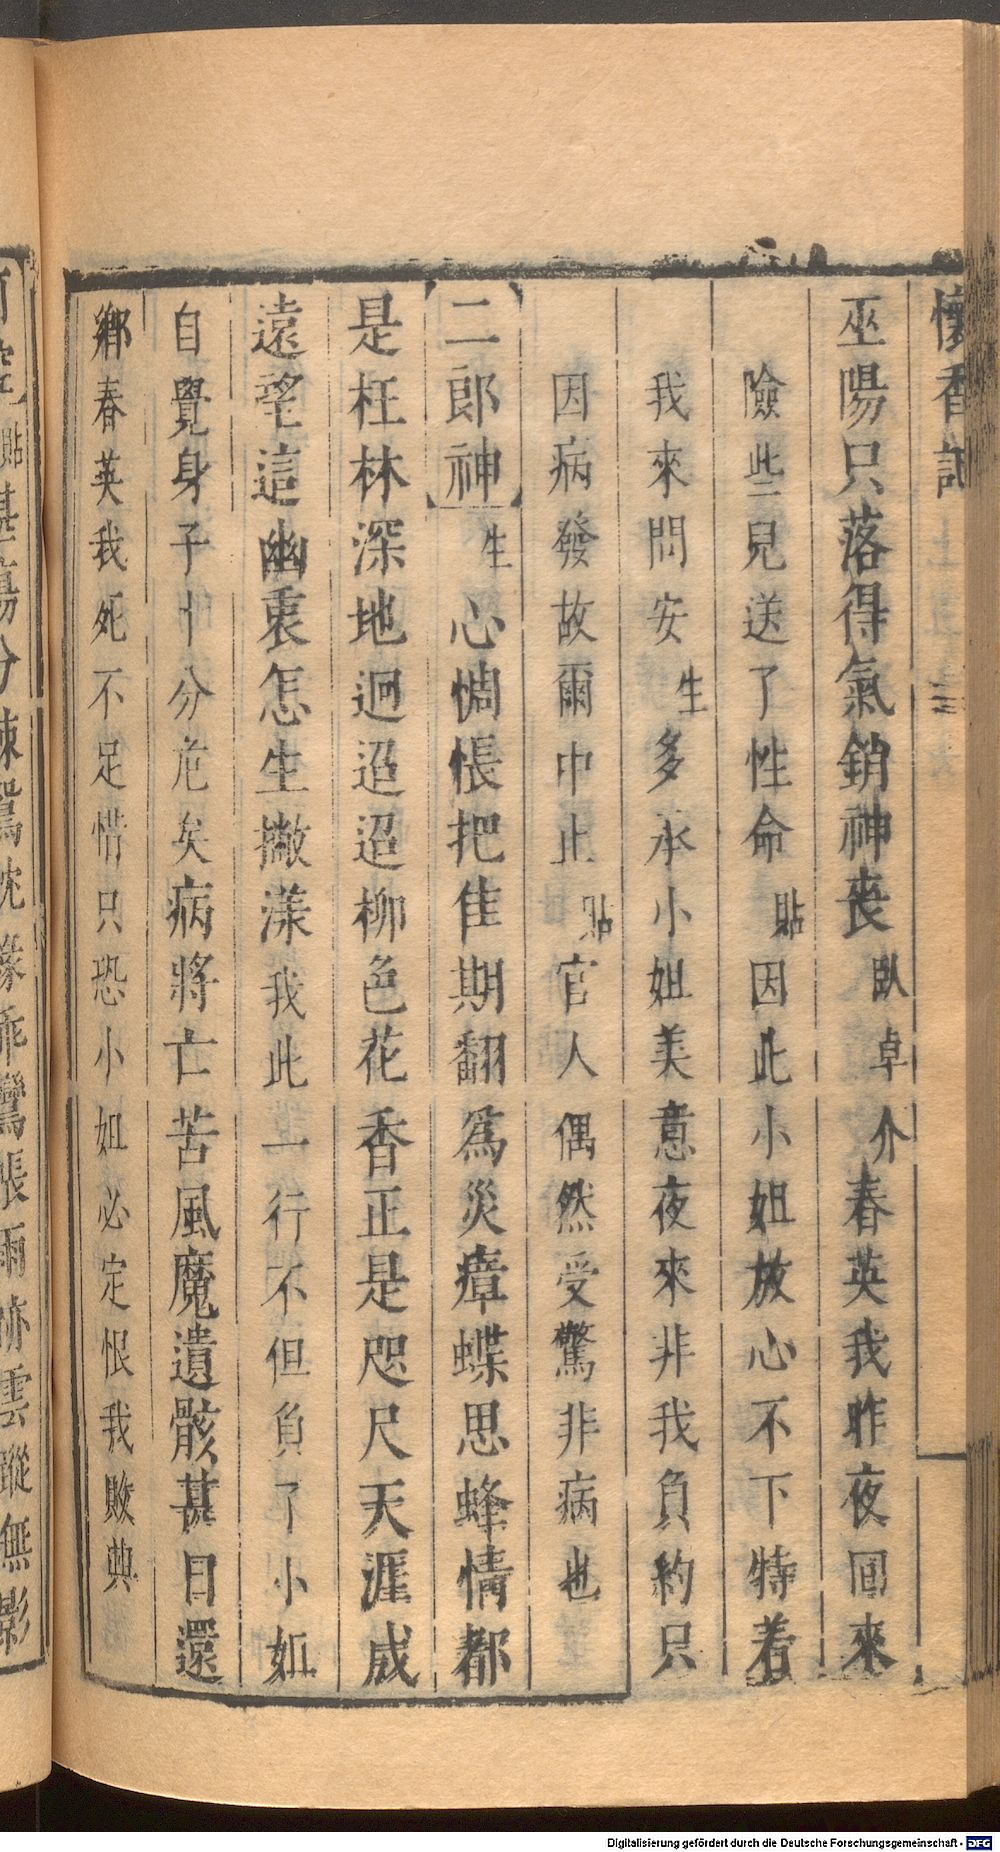 懷香記
巫陽只落得氣銷神喪臥卓介春英我昨夜回來
險些兒送了性命貼因此小姐放心不下特着
我來問安生多承小姐美意夜來非我負約只
因病發故爾中止貼官人偶然受驚非病也
二郎神生心惆悵把佳期翻爲災瘴蝶思蜂情都
是枉林深地迥迢迢柳色花香正是咫尺天涯成
遠望這幽衷怎生撇漾我此一行不但負了小姐
自覺身子十分危矣病將亡苦風魔遺骸甚日還
鄉春英我死不足惜只恐小姐必定恨我敗興
貼甚蕩分疎鴛枕緣乖鸞帳雨跡雲蹤無影
Digitalisierung gefördert durch die Deutsche Forschungsgemeinschaft - DFG